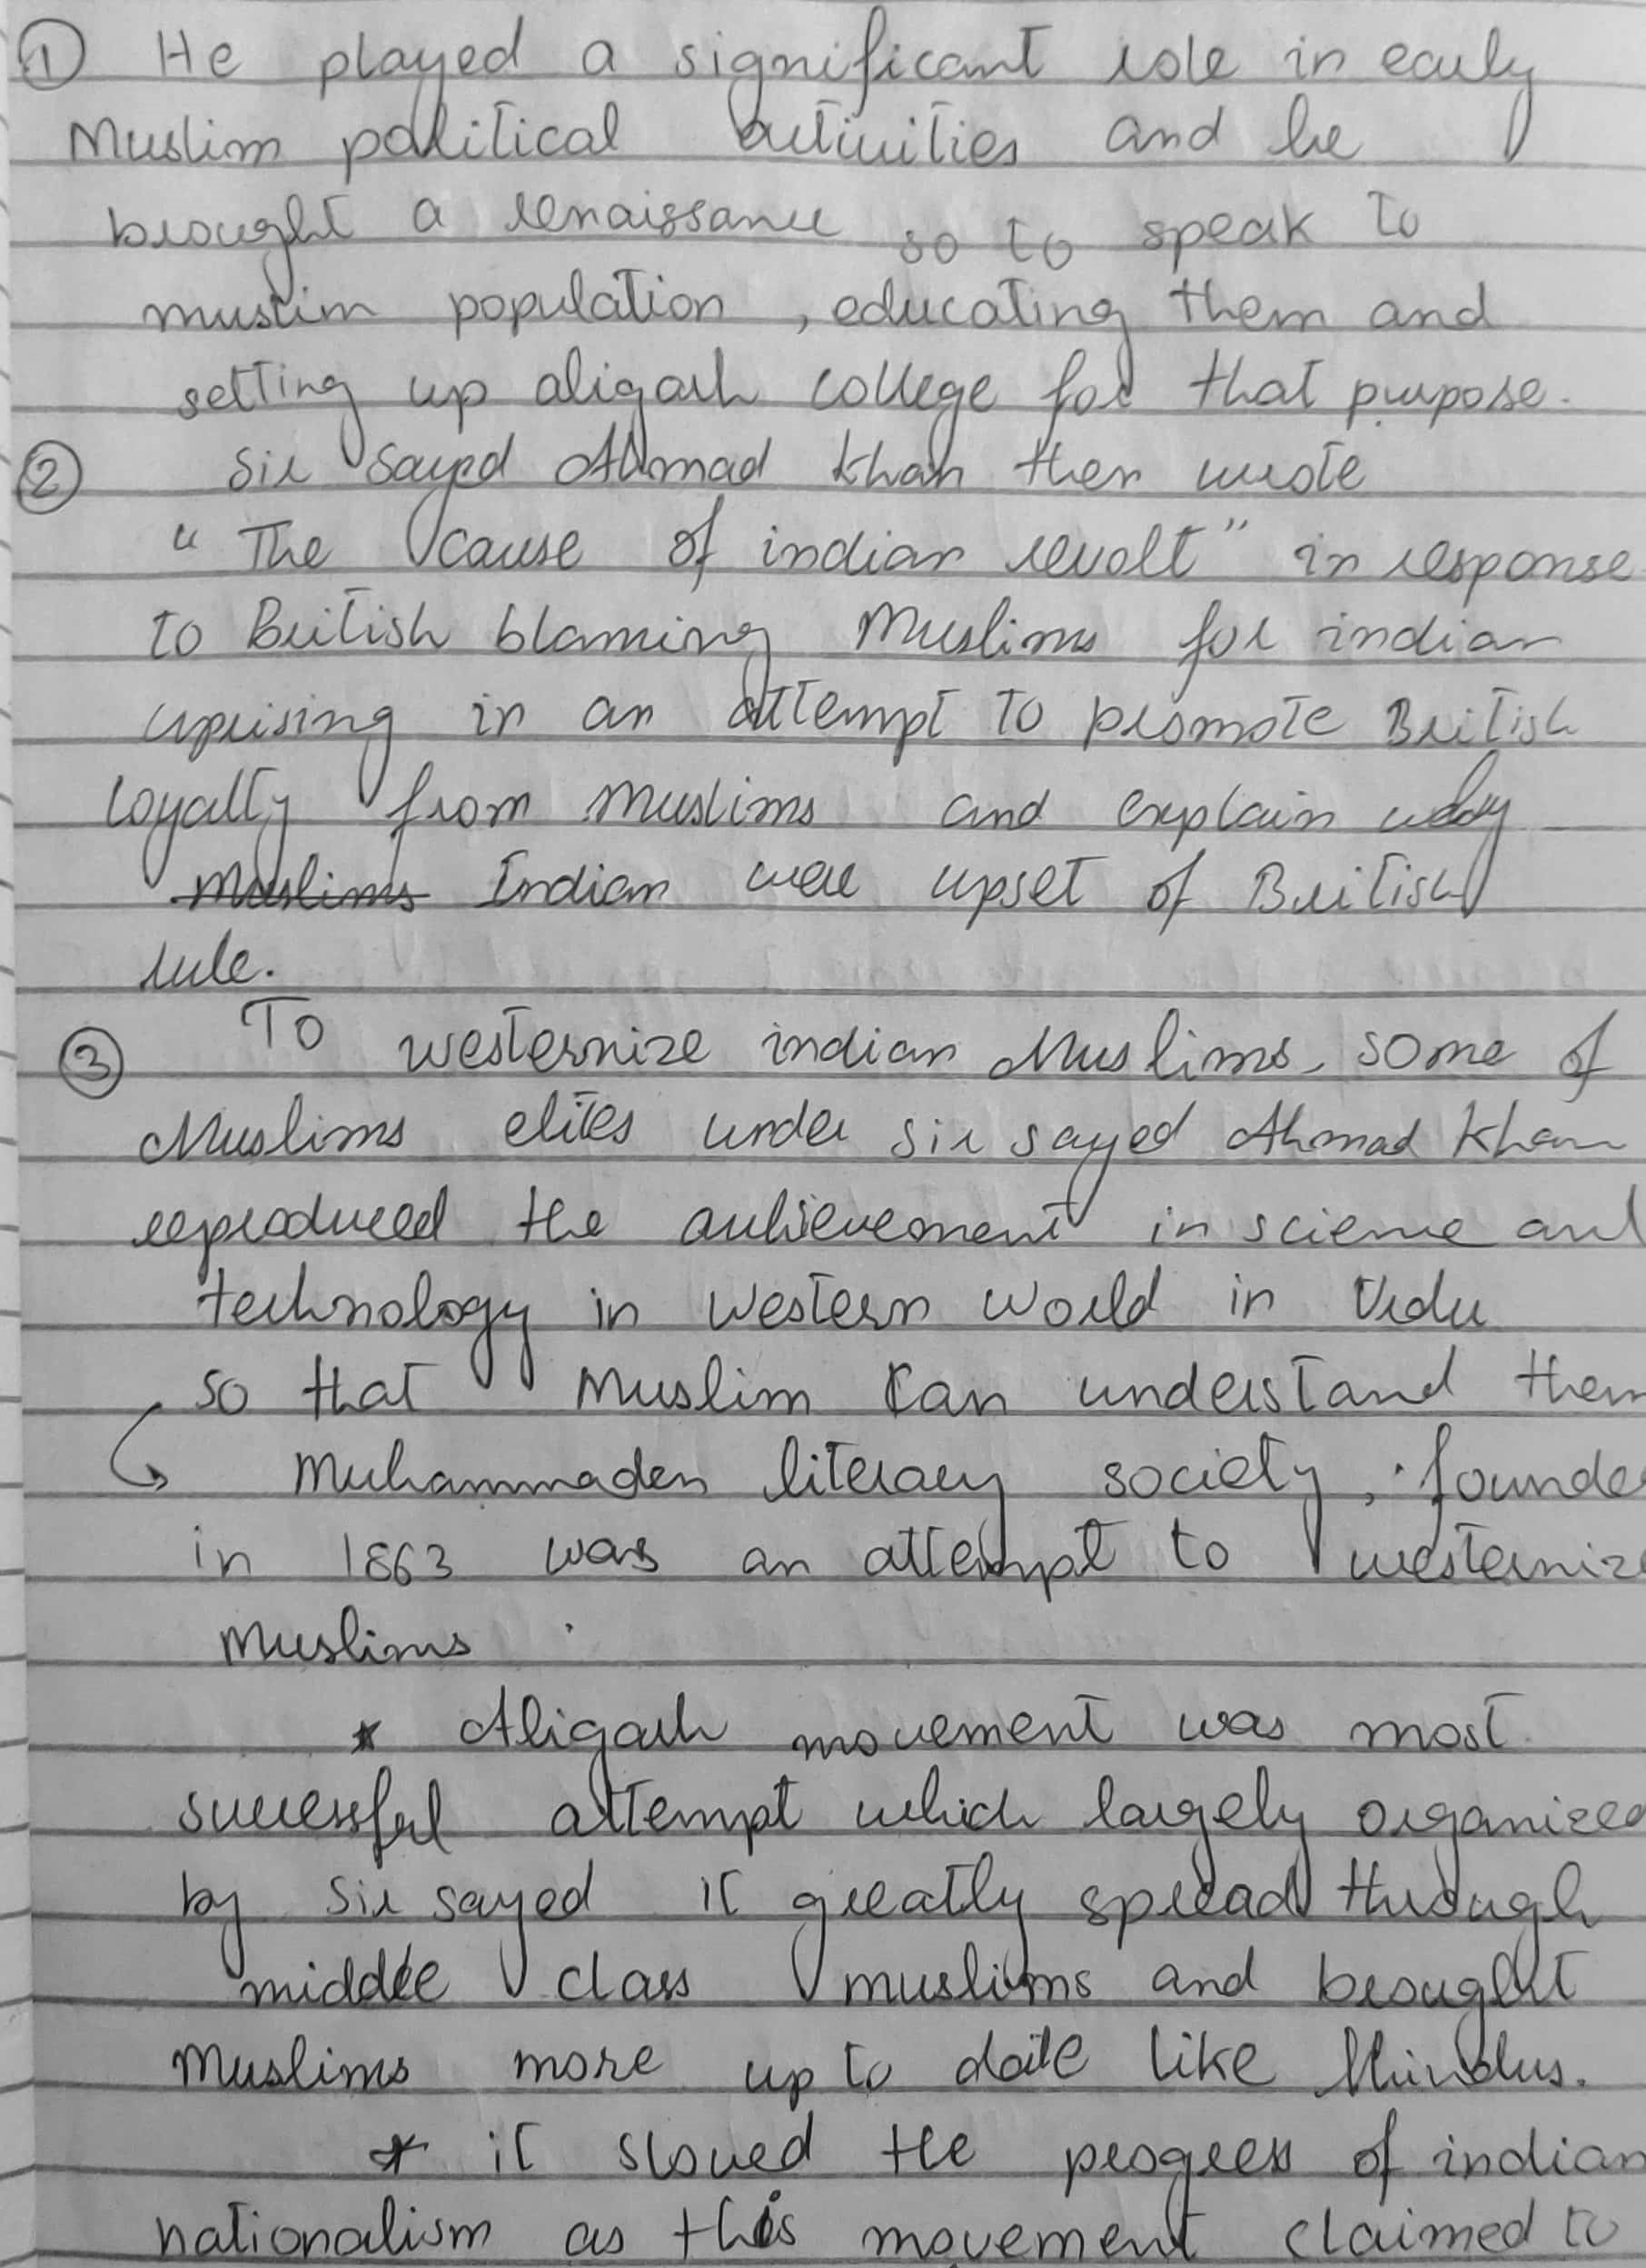 ① He played a significant role in early
Muslim political activities and he
brought a renaissance so to speak to
muslim population , educating them and
setting up aligarh college for that purpose.
② Sir Sayed Ahmad Khan then wrote
" The cause of indian revolt " in response
to British blaming Muslims for indian
uprising in an attempt to promote British
loyalty from Muslims and explain why
Muslims Indian were upset of British
rule.
③ To westernize indian Muslims some of
Muslims elites under sir sayed Ahmad Khan
reproduced the achievement in science and
technology in western world in Urdu
so that Muslim can understand them
Muhammaden literary society, founde
in 1863 was an attempt to westernize
Muslims
* Aligarh movement was most
successful attempt which largely organized
by Sir sayed it greatly spread through
middle class muslims and brought
Muslims more up to date like Hindus.
* it slowed the progress of indian
nationalism as this movement claimed to